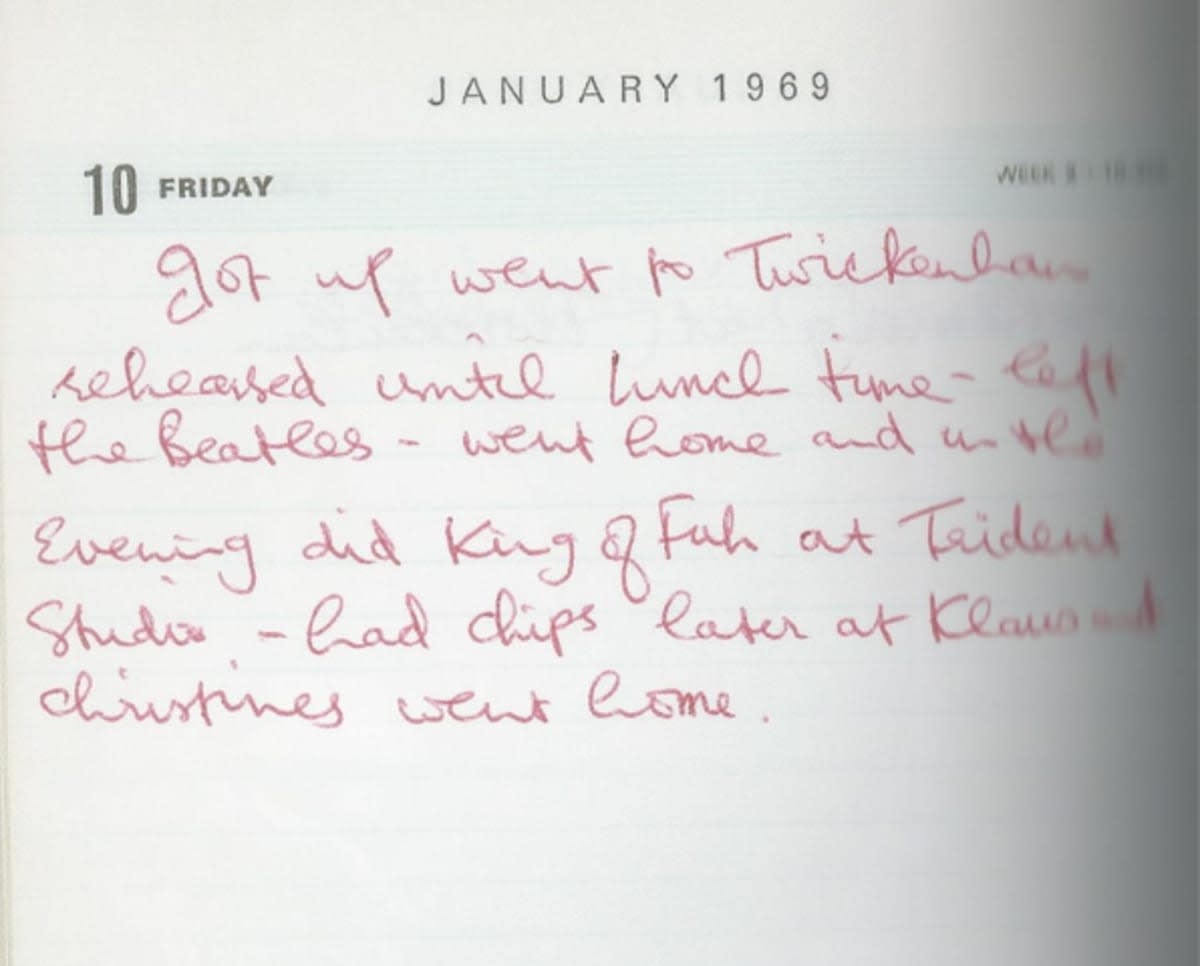 JANUARY 1969
10 FRIDAY
WEEK
got up went to Twickenham
rehearsed until lunch time - left
the Beatles - went home and in the
Evening did King of Fuh at Trident
Studio - had chips later at Klaus and
christines went home.